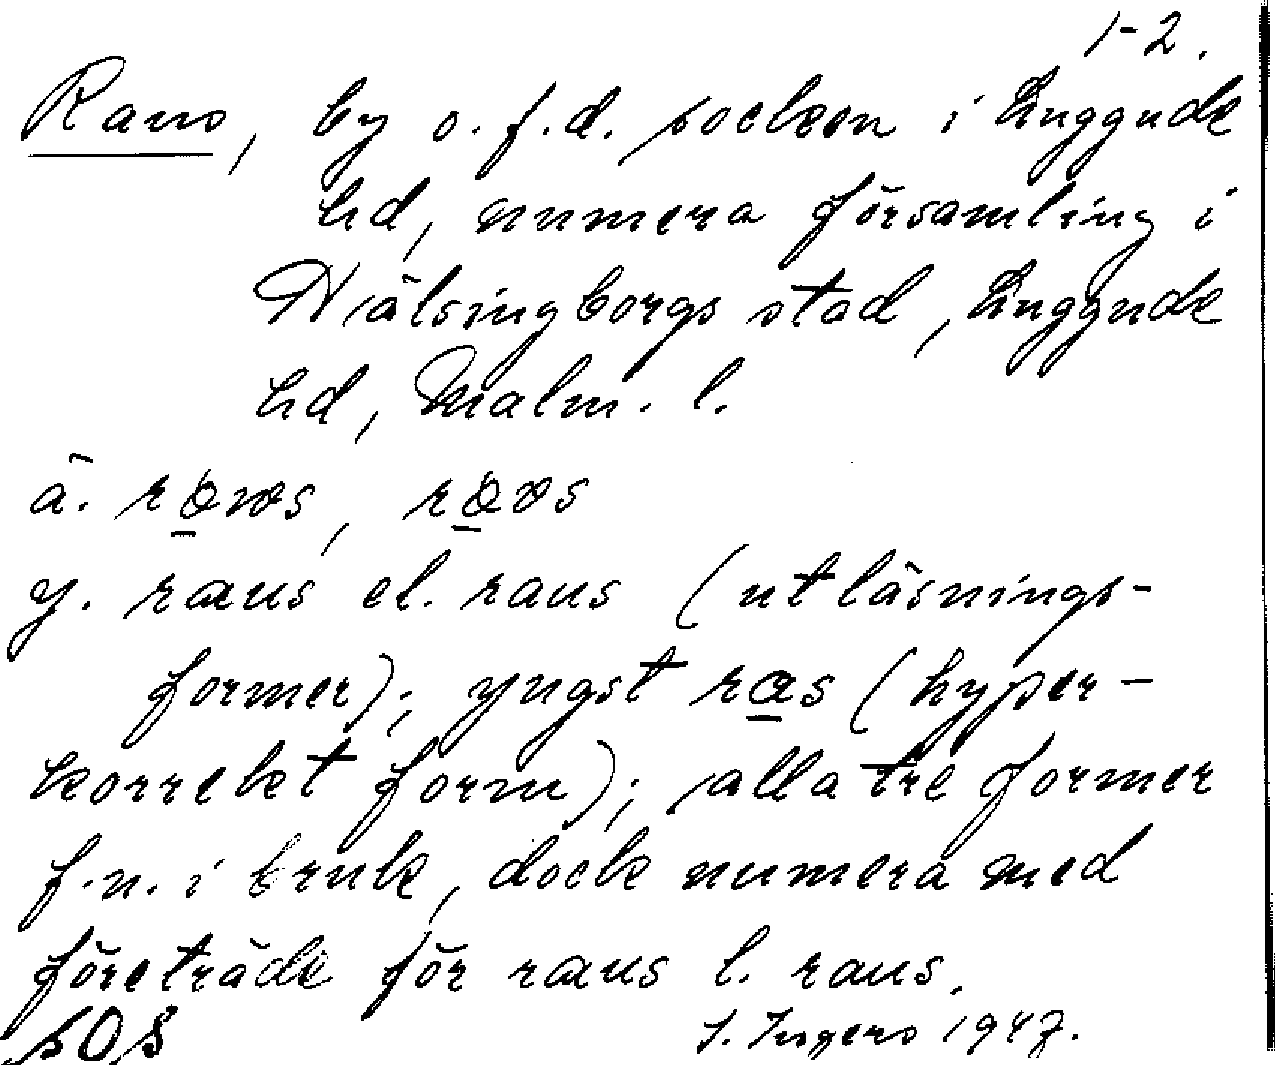 1-2.
Raus, by o. f.d. socken i Luggude
hd, numera församling i
Hälsingborgs stad, Luggude
hd, Malm. l.
ä. röws, rövs
y. raus el. raus (utläsnings-
former); yngst ras (hyper-
korrekt form); alla tre former
f.n. i bruk, dock numera med
företräde för raus l. raus.
SOS I. Ingers 1947.